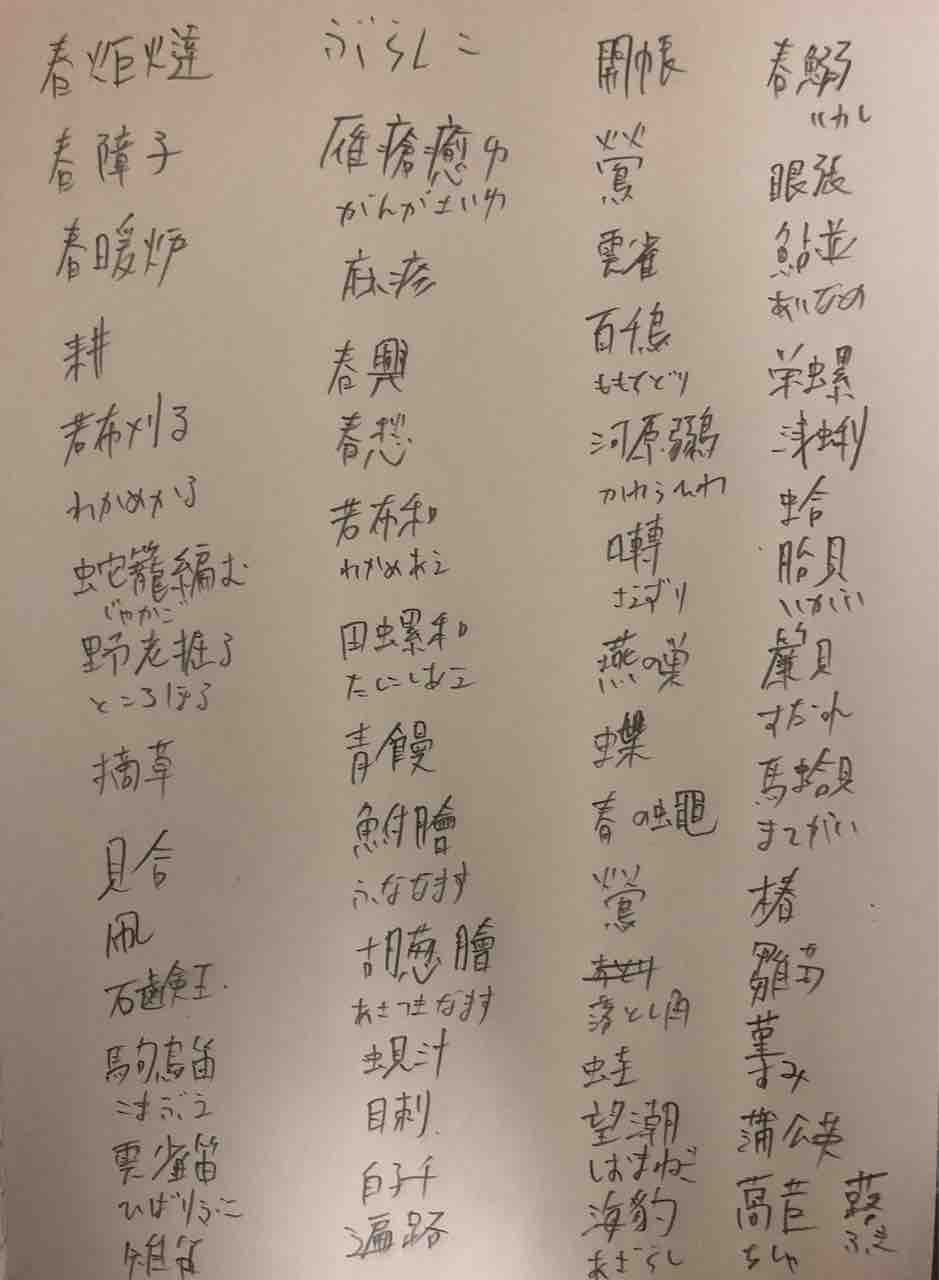 春炬燵
春障子
春暖炉
耕
若布刈る
わかめかる
蛇籠編む
じゃかご
野老掘る
ところほる
摘草
貝合
凧
石鹸玉
駒鳥笛
こまぶえ
雲雀笛
ひばりぶえ
雉笛
ぶらんこ
雁瘡癒ゆ
がんがさいゆ
麻疹
春興
春愁
若布和
わかめあえ
田螺和
たにしあえ
青饅
鮒膾
ふななます
胡葱膾
あさつきなます
蜆汁
目刺
白子干
遍路
開帳
鶯
雲雀
百千鳥
ももちどり
河原鶸
かわらひわ
囀
さえずり
燕の巣
蝶
春の蝿
鶯
落とし角
蛙
望潮
しおまねき
海豹
あざらし
春鰯
いわし
眼張
鮎並
あいなめ
栄螺
浅蜊
蛤
胎貝
いがい
簾貝
すだれ
馬蛤貝
まてがい
椿
雛菊
菫
すみ
蒲公英
萵苣
ちしゃ
蕗
ふき